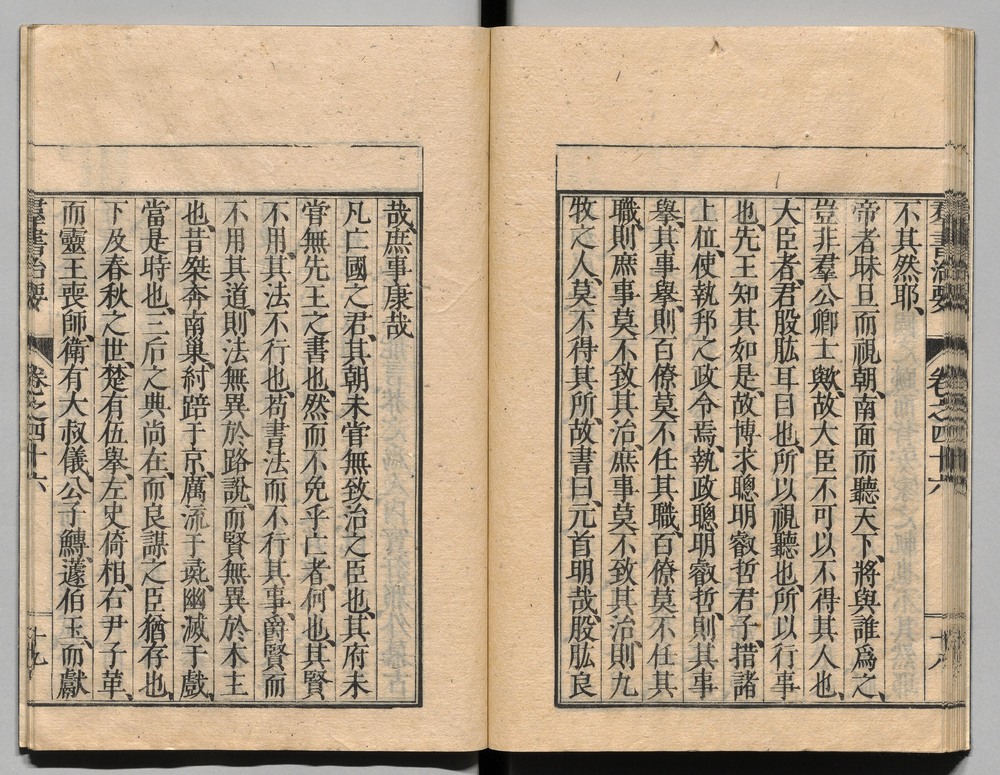 羣書治要 卷之四十六 十八
不其然耶、
帝者昧旦而視朝、南面而聽天下、將與誰爲之、
豈非羣公卿士歟、故大臣不可以不得其人也、
大臣者、君股肱耳目也、所以視聽也、所以行事
也、先王知其如是、故博求聰明叡哲君子、措諸
上位、使執邦之政令焉、執政聰明叡哲、則其事
舉、其事舉、則百僚莫不任其職、百僚莫不任其
職、則庶事莫不致其治、庶事莫不致其治、則九
牧之人、莫不得其所、故書曰、元首明哉、股肱良
哉、庶事康哉
凡亡國之君、其朝未甞無致治之臣也、其府未
甞無先王之書也、然而不免乎亡者、何也、其賢
不用、其法不行也、苟書法而不行其事、爵賢而
不用其道、則法無異於路說、而賢無異於木主
也、昔桀奔南巢、紂踣于京、厲流于彘、幽滅于戲、
當是時也、三后之典尚在、而良謀之臣猶存也、
下及春秋之世、楚有伍舉、左史倚相、右尹子革、
而靈王喪師、衛有大叔儀、公子鱄、蘧伯玉、而獻
羣書治要 卷之四十六 十九